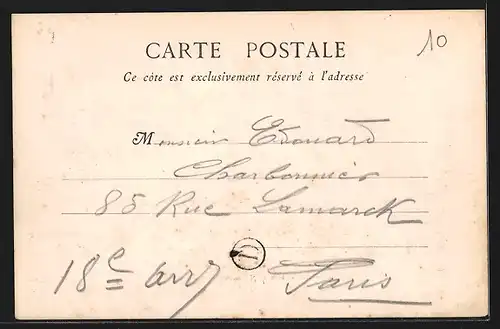 10
CARTE POSTALE
Ce côté est exclusivement réservé à l'adresse
Monsieur Edouard
Charbonnier
85 Rue Lamarck
18e arrt
Paris